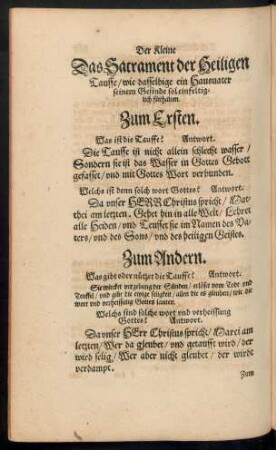 Der Kleine
Das Sacrament der Heiligen
Tauffe / wie dasselbige ein Hausuater
seinem Gesinde sol einfeltig-
lich fürhalten.
Zum Ersten.
Was ist die Tauffe? Antwort.
Die Tauffe ist nicht allein schlecht wasser /
Sondern sie ist das Wasser in Gottes Gebott
gefasset / vnd mit Gottes Wort verbunden.
Welchs ist denn solch wort Gottes? Antwort.
Da vnser HERR Christus spricht / Mat-
thei am letzten. Gehet hin in alle Welt / Lehret
alle Heiden / vnd Teuffet sie im Namen des Va-
ters / vnd des Sons / vnd des heiligen Geistes.
Zum Andern.
Was gibt oder nützet die Tauffe? Antwort.
Sie wircket vergebung der Sünden / erlöset vom Tode vnd
Teuffel / vnd gibt die ewige seligkeit / allen die es gleuben / wie die
wort vnd verheissung Gottes lauten.
Welchs sind solche wort vnd verheissung
Gottes? Antwort.
Da vnser HErr Christus spricht / Marci am
letzten / Wer da gleubet / vnd getaufft wird / der
wird selig / Wer aber nicht gleubet / der wirdt
verdampt.
Zum